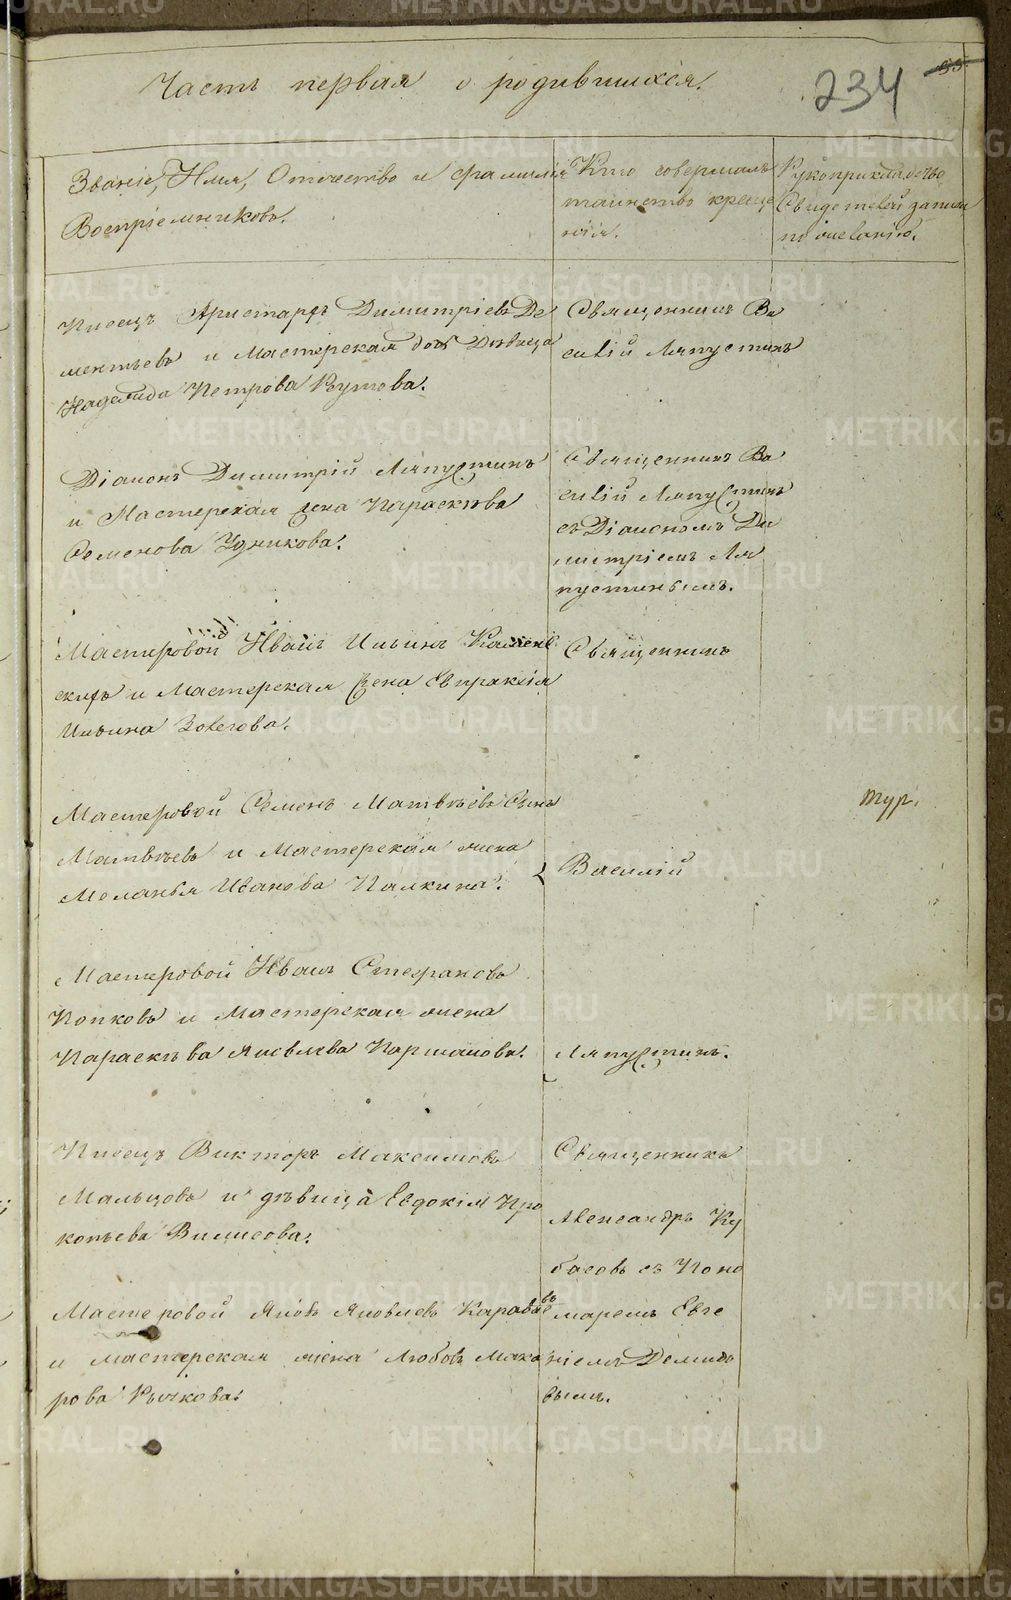 Часть первая о родившихся.
234
55.
Званіе, Имя, Отчество и фамилія
Воспріемниковъ.
Кто совершалъ
таинство креще
нія.
Рукоприкладство
Свидетелей записи
по желанію.
Писецъ Аристархъ Димитріевъ Де
ментьевъ и Мастерская дочь Девица
Надежда Петрова Кутова.
Священникъ Ва
силій Ляпустинъ
Діаконъ Димитрій Ляпустинъ
и Мастерская жена Параскева
Семенова Удникова.
Священникъ Ва
силій Ляпустинъ
съ Діакономъ Ди
митріемъ Ля
пустинымъ.
Мастеровой Иванъ Ильинъ Каменс
скихъ и Мастерская жена Евпраксія
Ильина
Священникъ
Мастеровой Семенъ Матвѣевъ Сынъ
Матвѣевъ и Мастерская жена
Меланья Иванова Палкина.
Василій
тур.
Мастеровой Иванъ Стефановъ
Попковъ и Мастерская жена
Параскѣва Яковлева Паршакова.
Ляпустинъ.
Писецъ Викторъ Максимовъ
Мальцовъ и дѣвица Евдокія Про
копьева
Священникъ
Александръ Ку
басовъ съ Поно
маремъ Евге
ніемъ Демидо
вымъ.
Мастеровой Яковъ Яковлевъ Караваевъ
и мастерская жена Любовь Мака
рова Рычкова.
METRIKI.GASO-URAL.RU